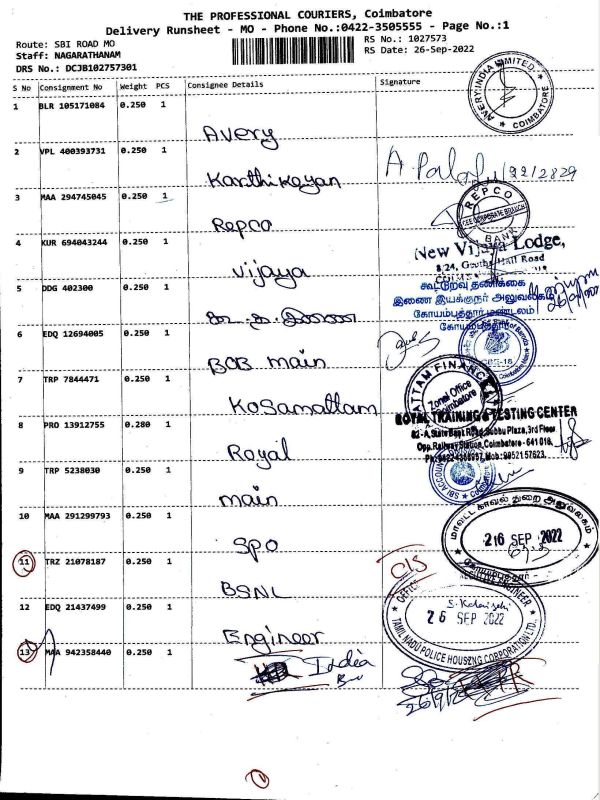 THE PROFESSIONAL COURIERS, Coimbatore
Delivery Runsheet - MO - Phone No.:0422-3505555 - Page No.:1
Route: SBI ROAD MO
RS No.: 1027573
Staff: NAGARATHANAM
RS Date: 26-Sep-2022
DRS No.: DCJB102757301
S No Consignment No Weight PCS Consignee Details Signature
1 BLR 105171084 0.250 1 Avery
AVERY INDIA LIMITED
COIMBATORE
2 VPL 400393731 0.250 1 Karthikeyan
3 MAA 294745045 0.250 1 Repco
REPCO
BANK
4 KUR 694043244 0.250 1 Vijaya
New Vijaya Lodge,
8/24, Geetha Hall Road
5 DDG 402300 0.250 1
கூட்டுறவு தணிக்கை
இணை இயக்குநர் அலுவலகம்
கோயம்புத்தூர் மண்டலம்
கோயம்புத்தூர்
6 EDQ 12694005 0.250 1 BOB main
7 TRP 7844471 0.250 1 Kosamattam
Zonal Office
Coimbatore
8 PRO 13912755 0.280 1 Royal
ROYAL TRAINING & TESTING CENTER
Opp. Railway Station, Coimbatore - 641 018.
9 TRP 5238030 0.250 1 main
10 MAA 291299793 0.250 1 SPO
மாவட்ட காவல் துறை அலுவலகம்
26 SEP 2022
11 TRZ 21078187 0.250 1 BSNL
C/S
12 EDQ 21437499 0.250 1 Engineer
26 SEP 2022
TAMIL NADU POLICE HOUSING CORPORATION LTD.,
13 MAA 942358440 0.250 1 India